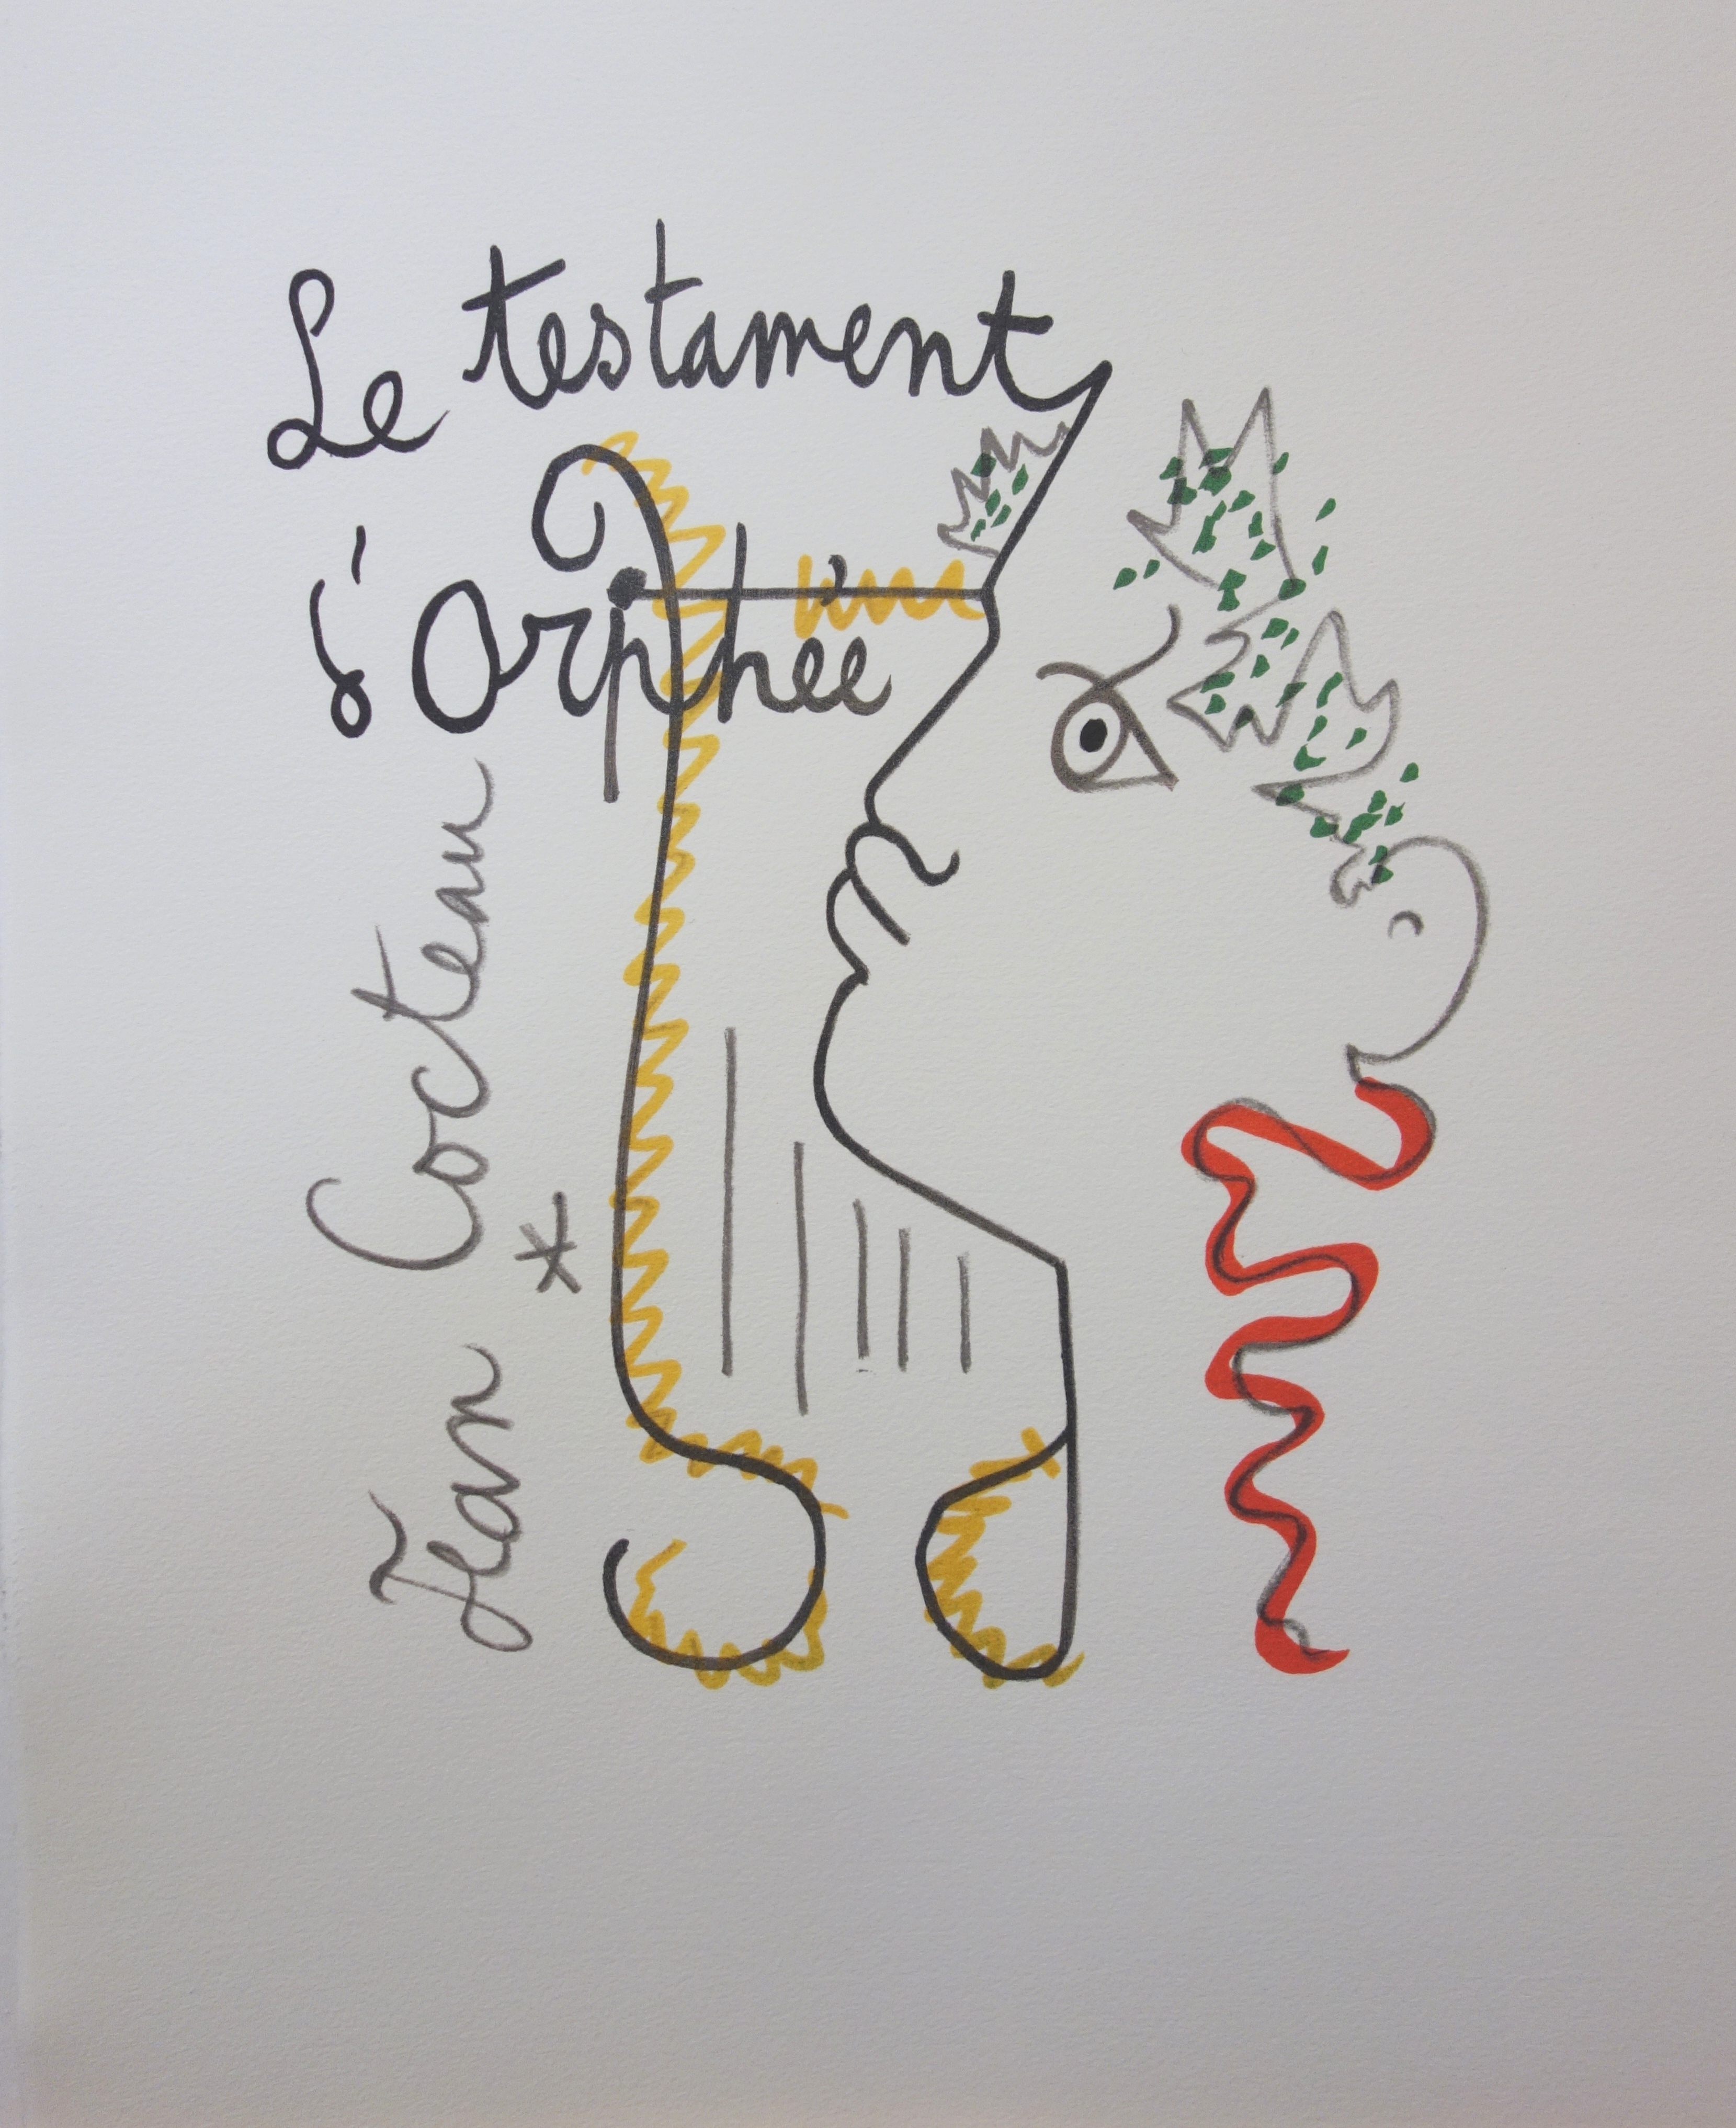 Le testament
d'Orphée
Jean Cocteau
*